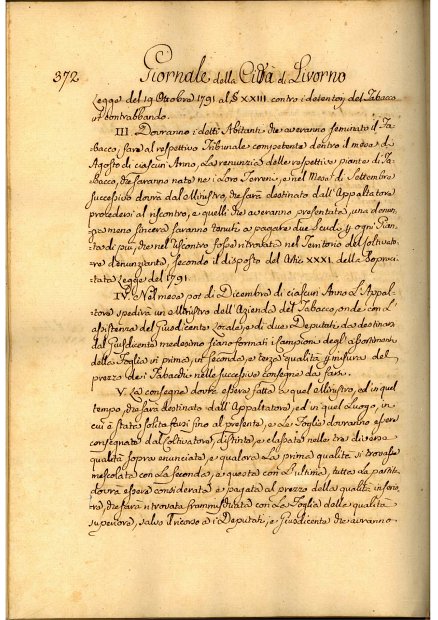 372
Giornale della Città di Livorno
Legge del 19 Ottobre 1791 al § XXIII contro i detentori del Tabacco
in contrabbando.
III. Dovranno i detti Abitanti che averanno seminato il Ta-
bacco, fare al respettivo Tribunale competente dentro il mese di
Agosto di ciascun Anno, La renunzia delle respettive piante di Ta-
bacco, che saranno nate ne i Loro Terreni, e nel Mese di Settembre
successivo dovrà dal Ministro, che sarà destinato dall'Appaltatore
procedersi al riscontro, e quelli che averanno presentata una denun-
zia meno sincera saranno tenuti a pagare due Scudi p ogni Pian-
ta di più, che nel riscontro fosse ritrovata nel Territorio del Coltivato-
re denunziante, secondo il disposto del Artic XXXI. della Sopraci-
tata Legge del 1791.
IV. Nel mese poi di Dicembre di ciascun Anno L'Appal-
tatore spedirà un Ministro dell'Azienda del Tabacco, onde con L'
assistenza del Giusdicente Locale, e di due Deputati, da destinarsi
dal Giusdicente medesimo siano formati i Campioni degli assortimenti
della Foglia in prima, in seconda, e terza qualità p misura del
prezzo de i Tabacchi nelle successive consegne da farsi.
V. La consegna dovrà essere fatta a quel Ministro, ed in quel
tempo, che sarà destinato dall'Appaltatore, ed in quel Luogo, in
cui è stata solita farsi fino al presente, e Le Foglie dovranno essere
consegnate dal Coltivatore, distinte, e classate nelle tre diverse
qualità sopra enunciate, e qualora La prima qualità si trovasse
mescolata con La seconda, e questa con L'ultima, tutta La partita
dovrà essere considerata e pagata al prezzo della qualità inferio-
re, che sarà ritrovata frammischiata con Le Foglie delle qualità
superiori, salvo il ricorso a i Deputati, e Giusdicente che avranno